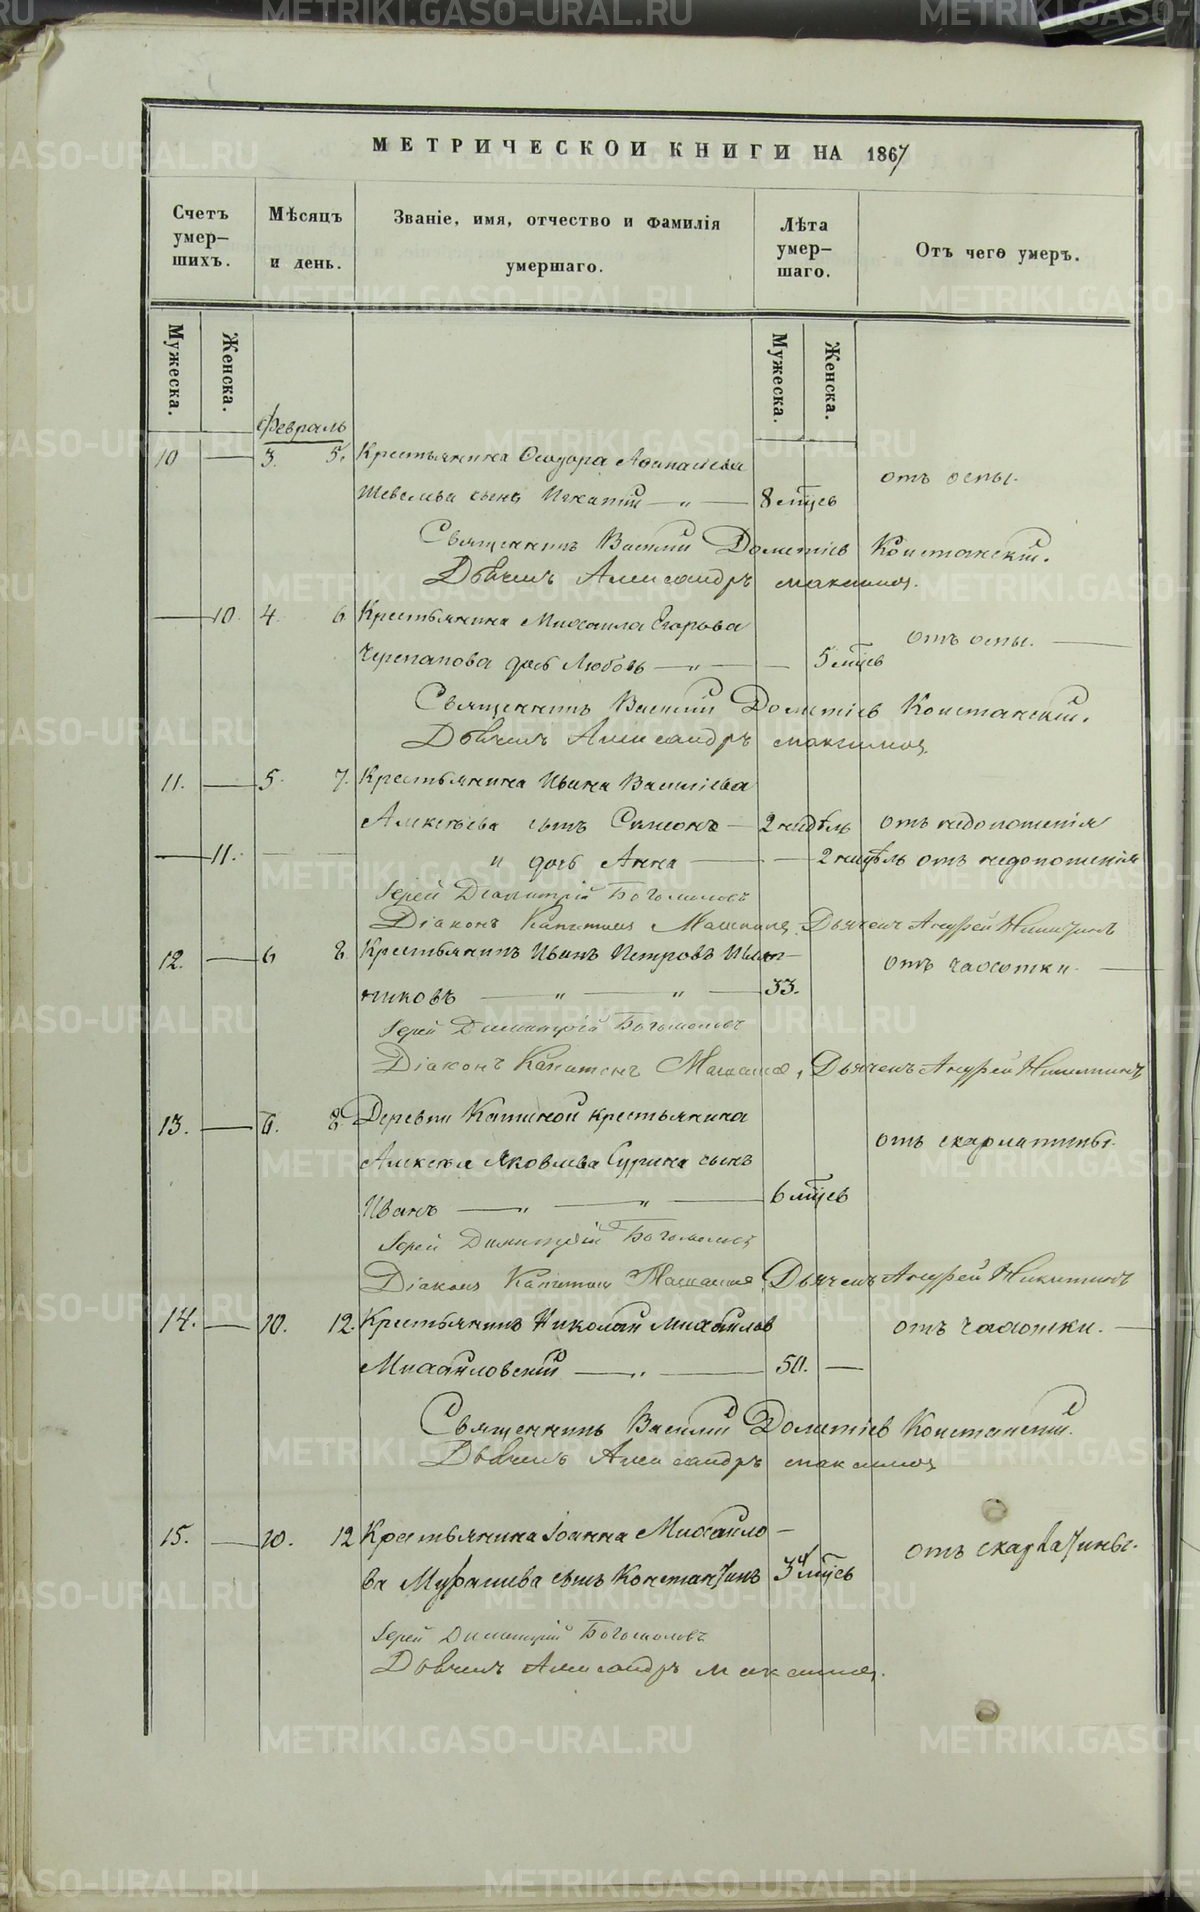 МЕТРИЧЕСКОИ КНИГИ НА 1867
Счетъ умер-шихъ.
Мѣсяцъ и день.
Званіе, имя, отчество и фамилія умершаго.
Лѣта умер-шаго.
Отъ чего умеръ.
Мужеска. Женска. Мужеска. Женска.
Февраль
10 — 3. 5. Крестьянина Ѳеодора Аѳанасіева
Шевелева сынъ Игнатій — „ — 8 мцев отъ оспы.
Священникъ Василій Дометіев Констанскій.
Дьячекъ Александръ Максимов.
— 10. 4. 6 Крестьянина Михаила Егорова
Черепанова дочь Любовь — „ — — 5 мцев отъ оспы. —
Священникъ Василій Дометіев Констанскій.
Дьячекъ Александръ Максимов.
11. — 5. 7. Крестьянина Ивана Василіева
Алексѣева сынъ Симеонъ — 2 недѣль отъ недоношенія
— 11. — и дочь Анна — — 2 недѣль отъ недоношенія
Іерей Димитрій Богомоловъ
Діаконъ Капитонъ Дьячекъ Андрей Никитинъ
12. — 6 8. Крестьянинъ Иванъ Петровъ
никовъ — „ — „ — 33. отъ чахотки. —
Іерей Димитрій Богомоловъ
Діаконъ Капитонъ Дьячекъ Андрей Никитинъ
13. — 6. 8. Деревни крестьянина
Алексѣя Яковлева Сурина сынъ отъ скарлатины.
Иванъ — „ — „ — 6 мцев
Іерей Димитрій Богомоловъ
Діаконъ Капитонъ Дьячекъ Андрей Никитинъ
14. — 10. 12. Крестьянинъ Николай Михайлов отъ чахотки. —
Михайловскій — „ — 50. —
Священникъ Василій Дометіев Констанскій.
Дьячекъ Александръ Максимов
15. — 10. 12 Крестьянина Іоанна Михайло-
ва сынъ Константинъ мцев отъ скарлатины.
Іерей Димитрій Богомоловъ
Дьячекъ Александръ Максимов.
METRIKI.GASO-URAL.RU